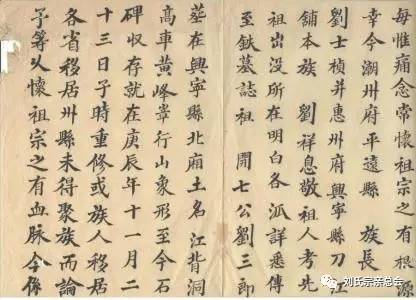 每惟痛念常懷祖宗之有根源
幸今潮州府平遠縣 族長
劉士楨并惠州府興寧縣刀江
鋪本族 劉祥息敬祖人考先
祖出没所在明白各派詳悉傳
至鈇墓誌祖 開七公劉三郎
塟在興寧縣北廂土名江背洞
高車黄峰寨行山象形至今石
碑収存就在庚辰年十一月二
十三日子時重修或族人移居
各省移居州縣未得聚族而論
予等乆懷祖宗之有血脉今係
刘氏宗亲总会